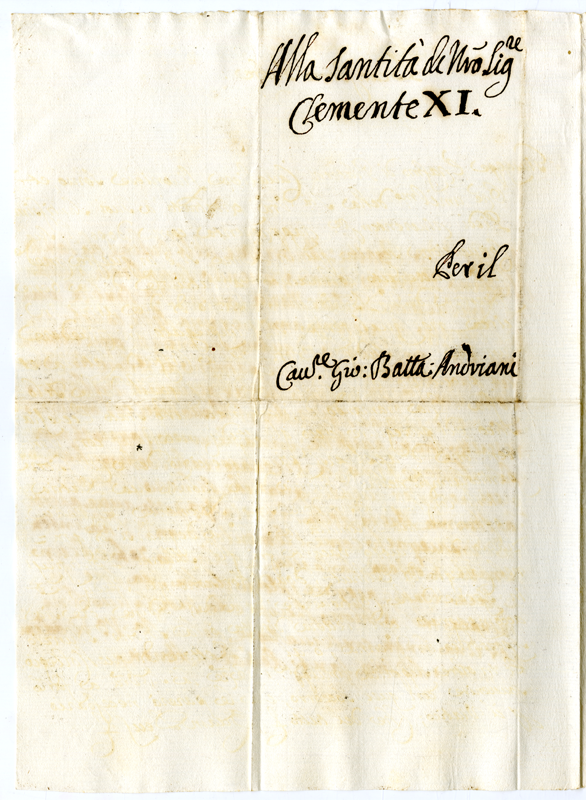 Alla Santità di Nrō Sig.re
Clemente XI.
Per il
Cau.re Gio: Batta: Andriani